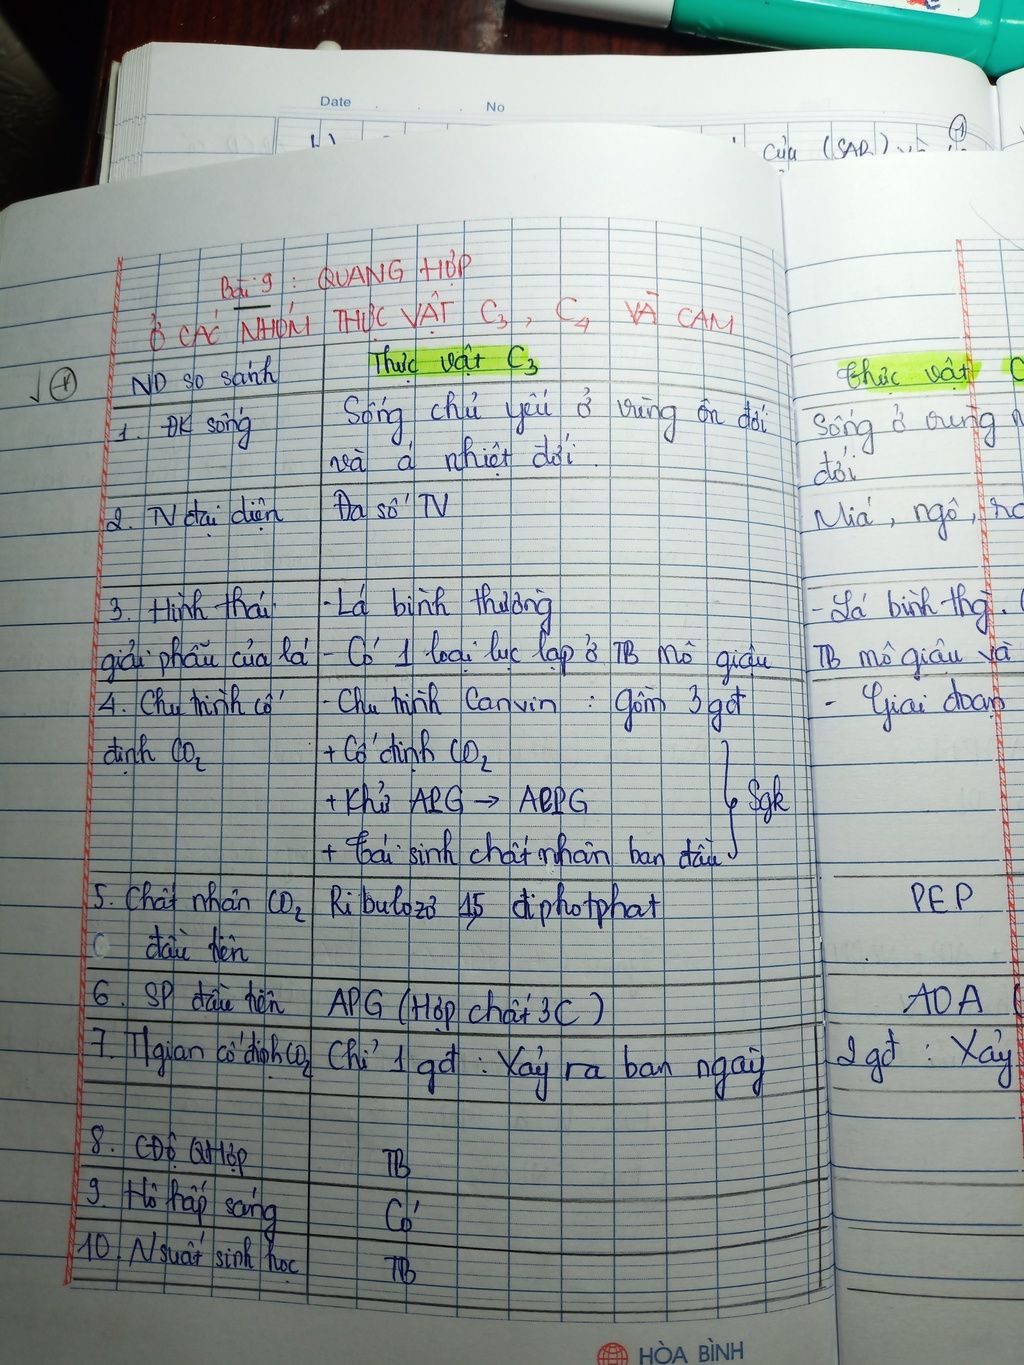 Date . . . No
của (SAR) và
Bài 9 : QUANG HỢP
Ở CÁC NHÓM THỰC VẬT C3, C4 VÀ CAM
ND so sánh
Thực vật C3
thực vật C
1. ĐK sống
Sống chủ yếu ở vùng ôn đới
và á nhiệt đới.
Sống ở vùng
đới
2. TV đại diện
Đa số TV
Mía, ngô,
3. Hình thái
giải phẫu của lá
- Lá bình thường
- Có 1 loại lục lạp ở TB mô giậu
- Lá bình thg.
TB mô giậu và
4. Chu trình cố
định CO2
- Chu trình Canvin : gồm 3 gđ
+ Cố định CO2
+ Khử APG → AlPG
+ tái sinh chất nhân ban đầu
Sgk
- Giai đoạn
5. Chất nhận CO2
đầu tiên
Ribulozơ 1,5 điphotphat
PEP
6. SP đầu tiên
APG (Hợp chất 3C)
AOA (
7. Tgian cố định CO2
Chỉ 1 gđ : Xảy ra ban ngày
2 gđ : Xảy
8. CĐộ QHợp
TB
9. Hô hấp sáng
Có
10. Nsuất sinh học
TB
HÒA BÌNH